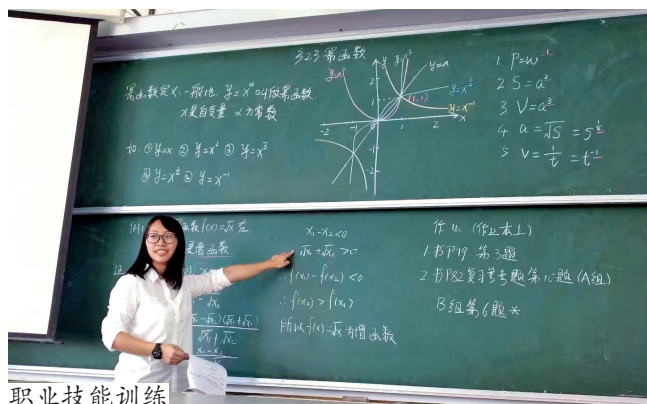 §2.3 幂函数
幂函数定义: 一般地, y=x^α 叫做幂函数.
x是自变量 α为常数
如 ①y=x ②y=x² ③y=x³
④y=x^½ ⑤y=x⁻¹
y=x²
y=x³
y=x
y=x^½
y=x⁻¹
(1,1)
-2 -1 0 1 2 x
2
1
-1
-2
1. P=w¹
2. S=a²
3. V=a³
4. a=√S=S^½
5. V=1/t=t⁻¹
函数f(x)=√x在
是增函数
(√x₁-√x₂)(√x₁+√x₂)
√x₁+√x₂
x₁-x₂
x₁-x₂<0
√x₁+√x₂>0
∴f(x₁)-f(x₂)<0
∴f(x₂)>f(x₁)
所以f(x)=√x为增函数
作业 (作业本上)
1. 书P79 第3题
2. 书P82复习参考题第10题(A组)
B组第6题*
职业技能训练